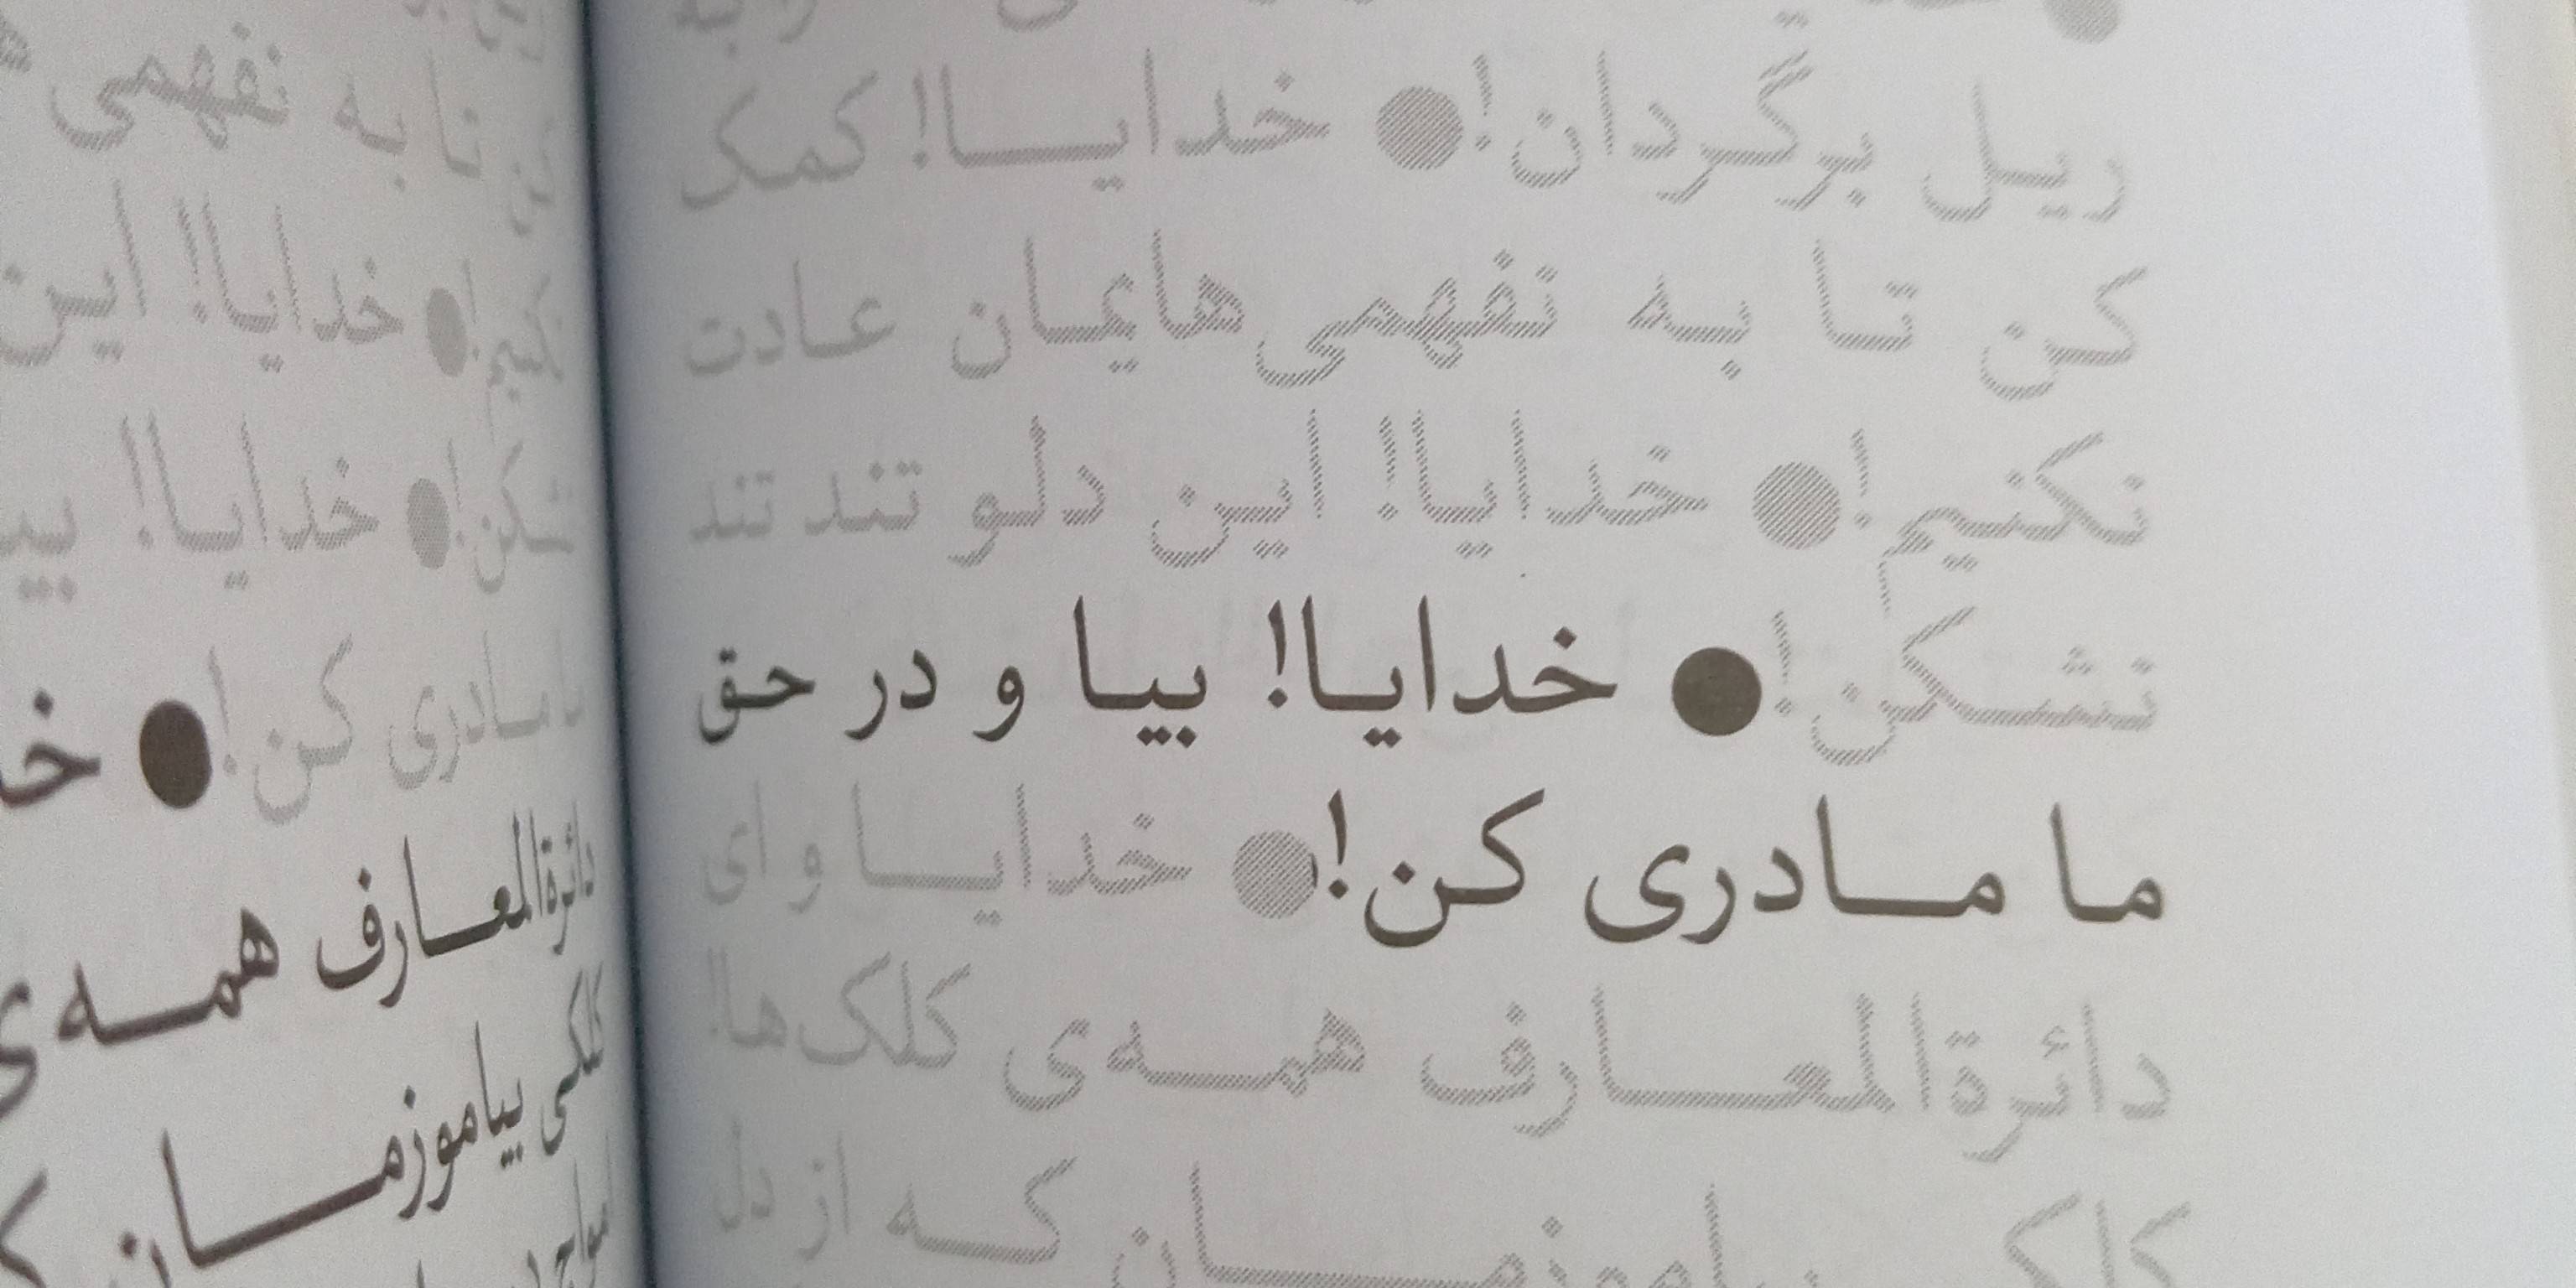 ریل برگردان! ● خدایا! کمک
کن تا به نفهمی‌هایمان عادت
نکنیم! ● خدایا! این دلو تند تند
نشکن! ● خدایا! بیا و در حق
ما مادری کن! ● خدایا و ای
دائرةالمعارف همه‌ی کلک‌ها!
کلکی بیاموزمان که از دل
تا به نفهمی
نکنیم! ● خدایا! این
نشکن! ● خدایا! بیا
ما مادری کن! ● خد
دائرةالمعارف همه‌ی
کلکی بیاموزمان ک